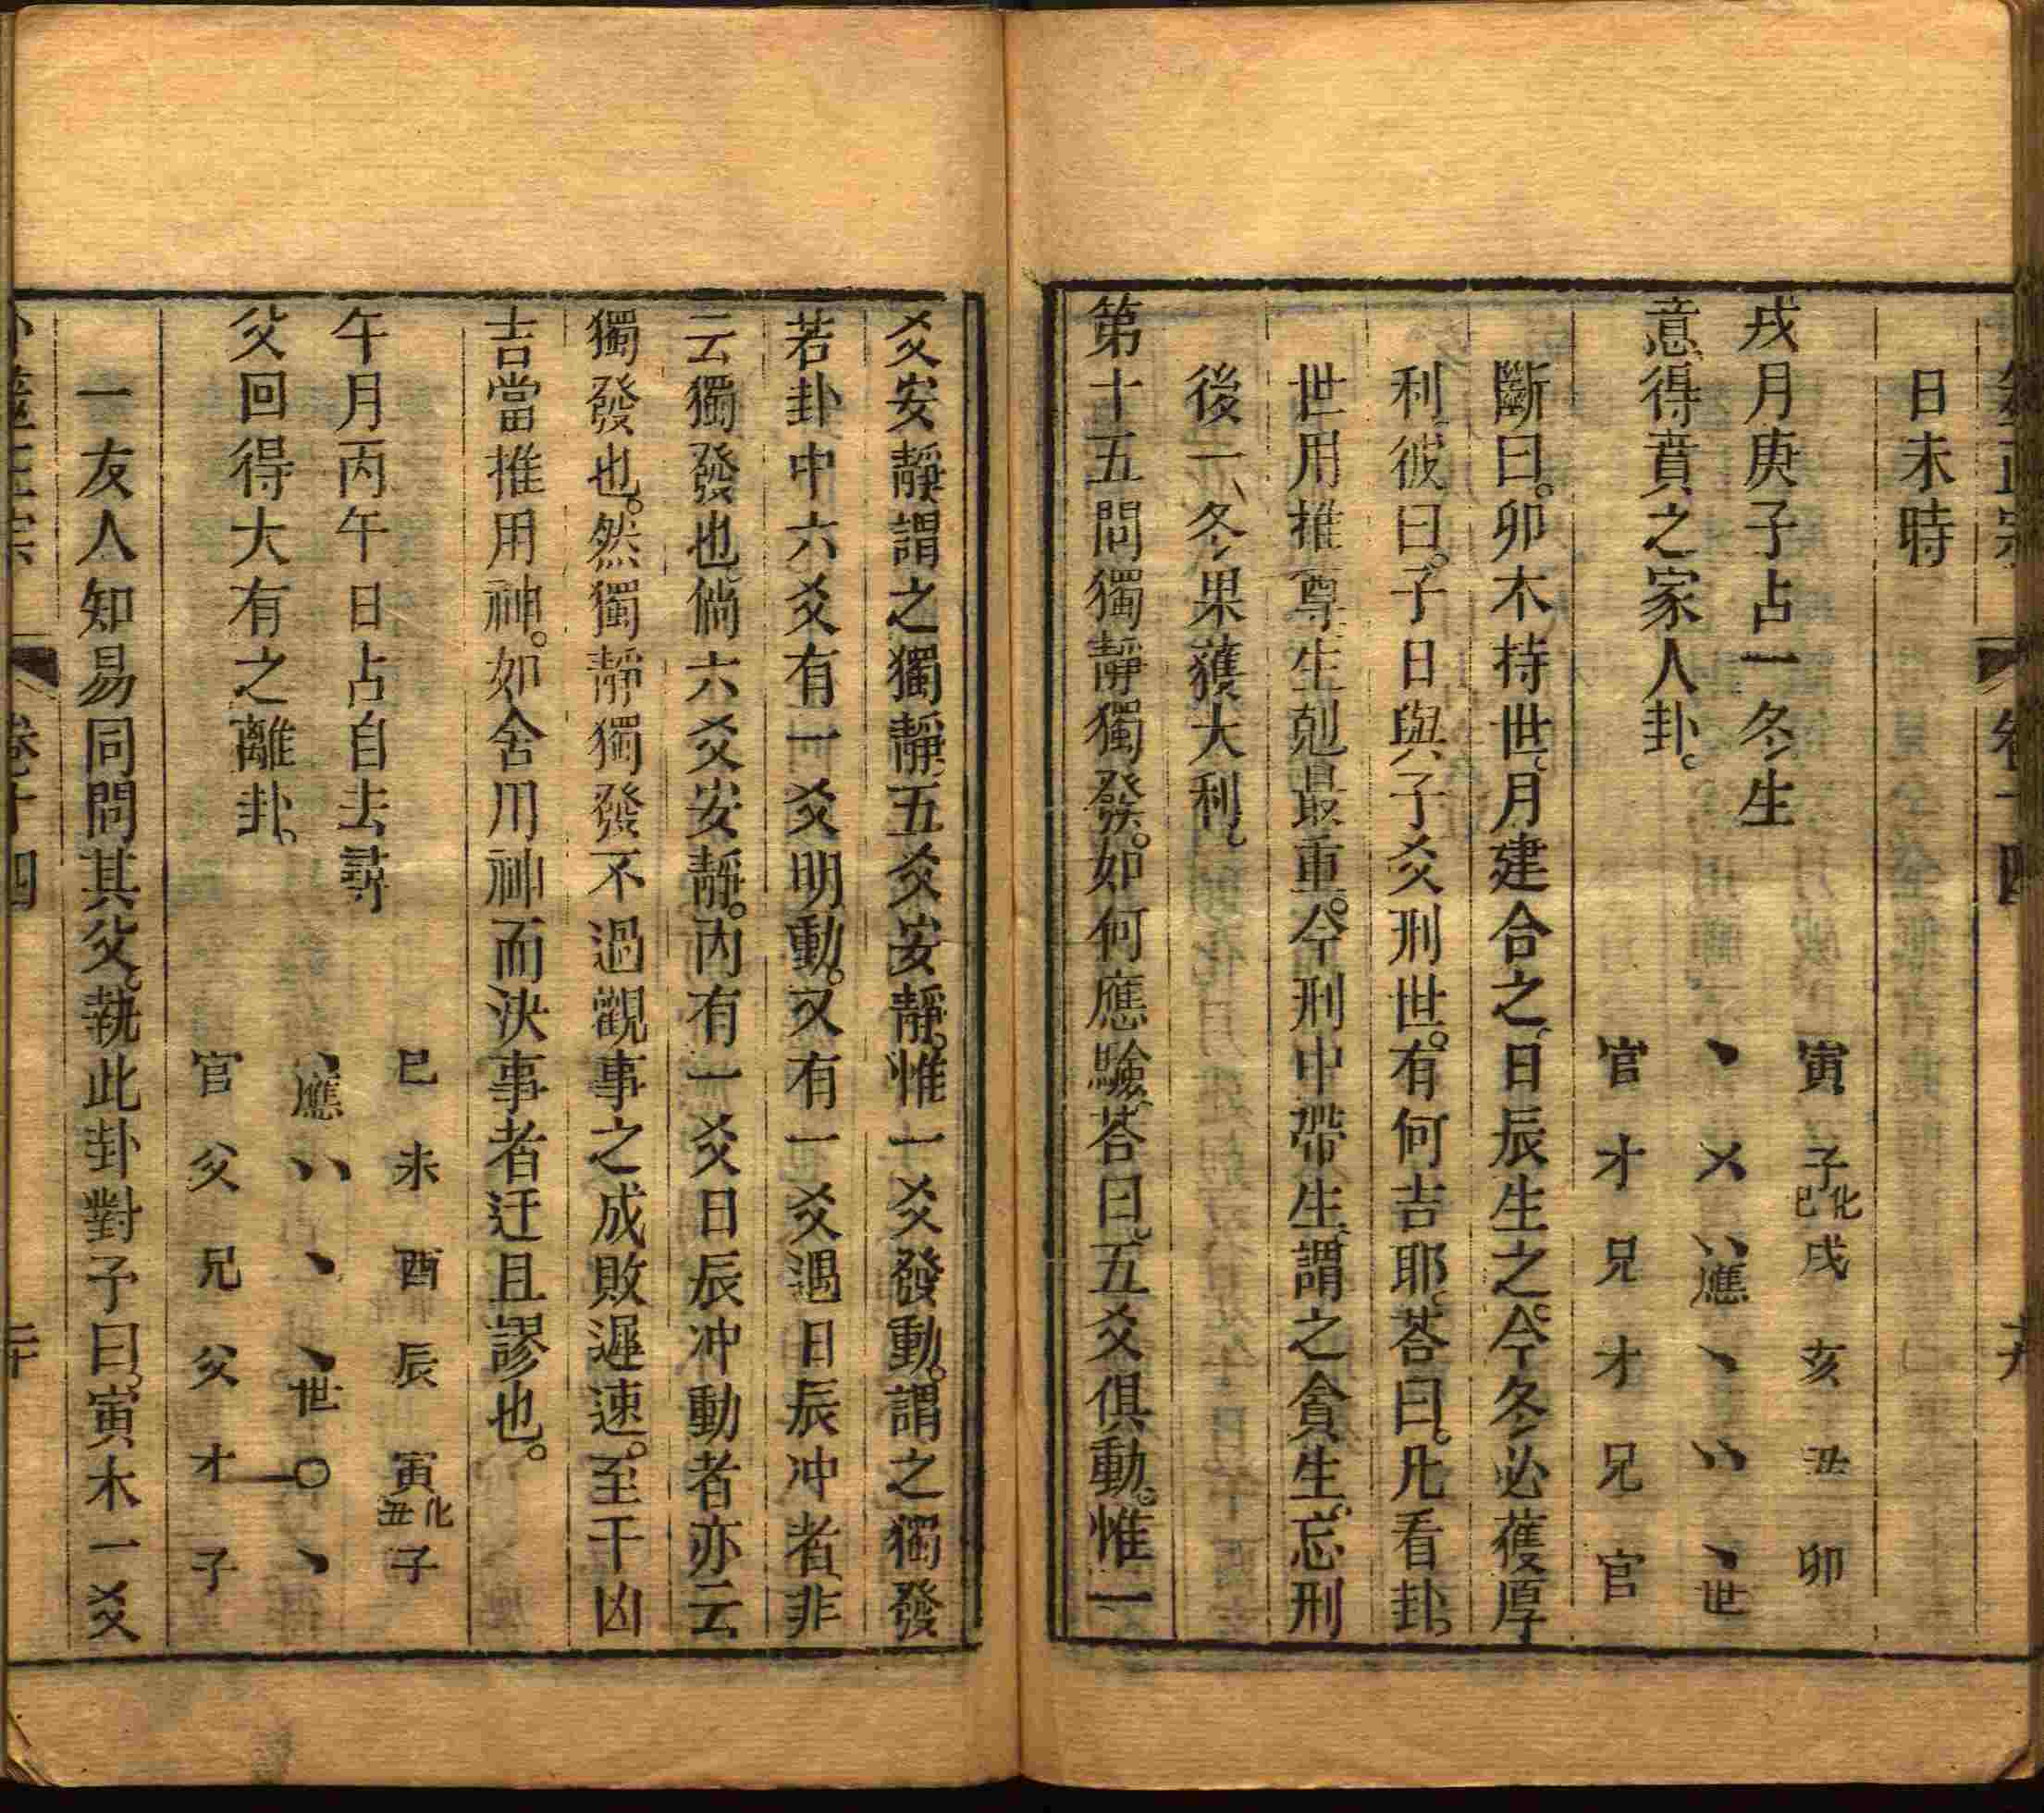 日未時
戌月庚子占一冬生
意得賁之家人卦。
寅 子化巳 戌 亥 丑 卯
、 乂 、、應 、 、、 、世
官 才 兄 才 兄 官
斷曰。卯木持世、月建合之、日辰生之。今冬必獲厚
利、彼曰。子日與子爻刑世。有何吉耶。荅曰。凡看卦、
世用推尊、生剋最重。今刑中帶生、謂之貪生。忘刑
後一冬果獲大利。
第十五問獨靜獨發。如何應驗、荅曰、五爻俱動。惟一
爻安靜謂之獨靜、五爻安靜。惟一爻發動。謂之獨發
若卦中六爻有一爻明動。又有一爻遇日辰冲者、非
云獨發也、倘六爻安靜。內有一爻日辰冲動者亦云
獨發也。然獨靜獨發不過觀事之成敗遲速。至干凶
吉當推用神。如舍用神而決事者迂且謬也。
午月丙午日占自去尋
父回得大有之離卦。
巳 未 酉 辰 寅化丑 子
、應 、、 、 、世 〇 、
官 父 兄 父 才 子
一友人知易同問其父、執此卦對予曰。寅木一爻
卷十四
二十